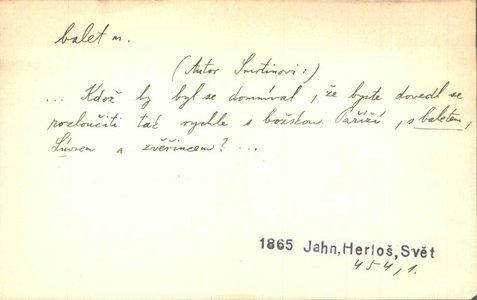 balet m.
(Autor Smrtinovi:)
... Kdož by byl se domníval, že byste dovedl se
rozloučiti tak rychle s božskou Paříží, s baletem,
Lúvrem a zvěřincem? ...
1865 Jahn, Herloš, Svět
454,1.